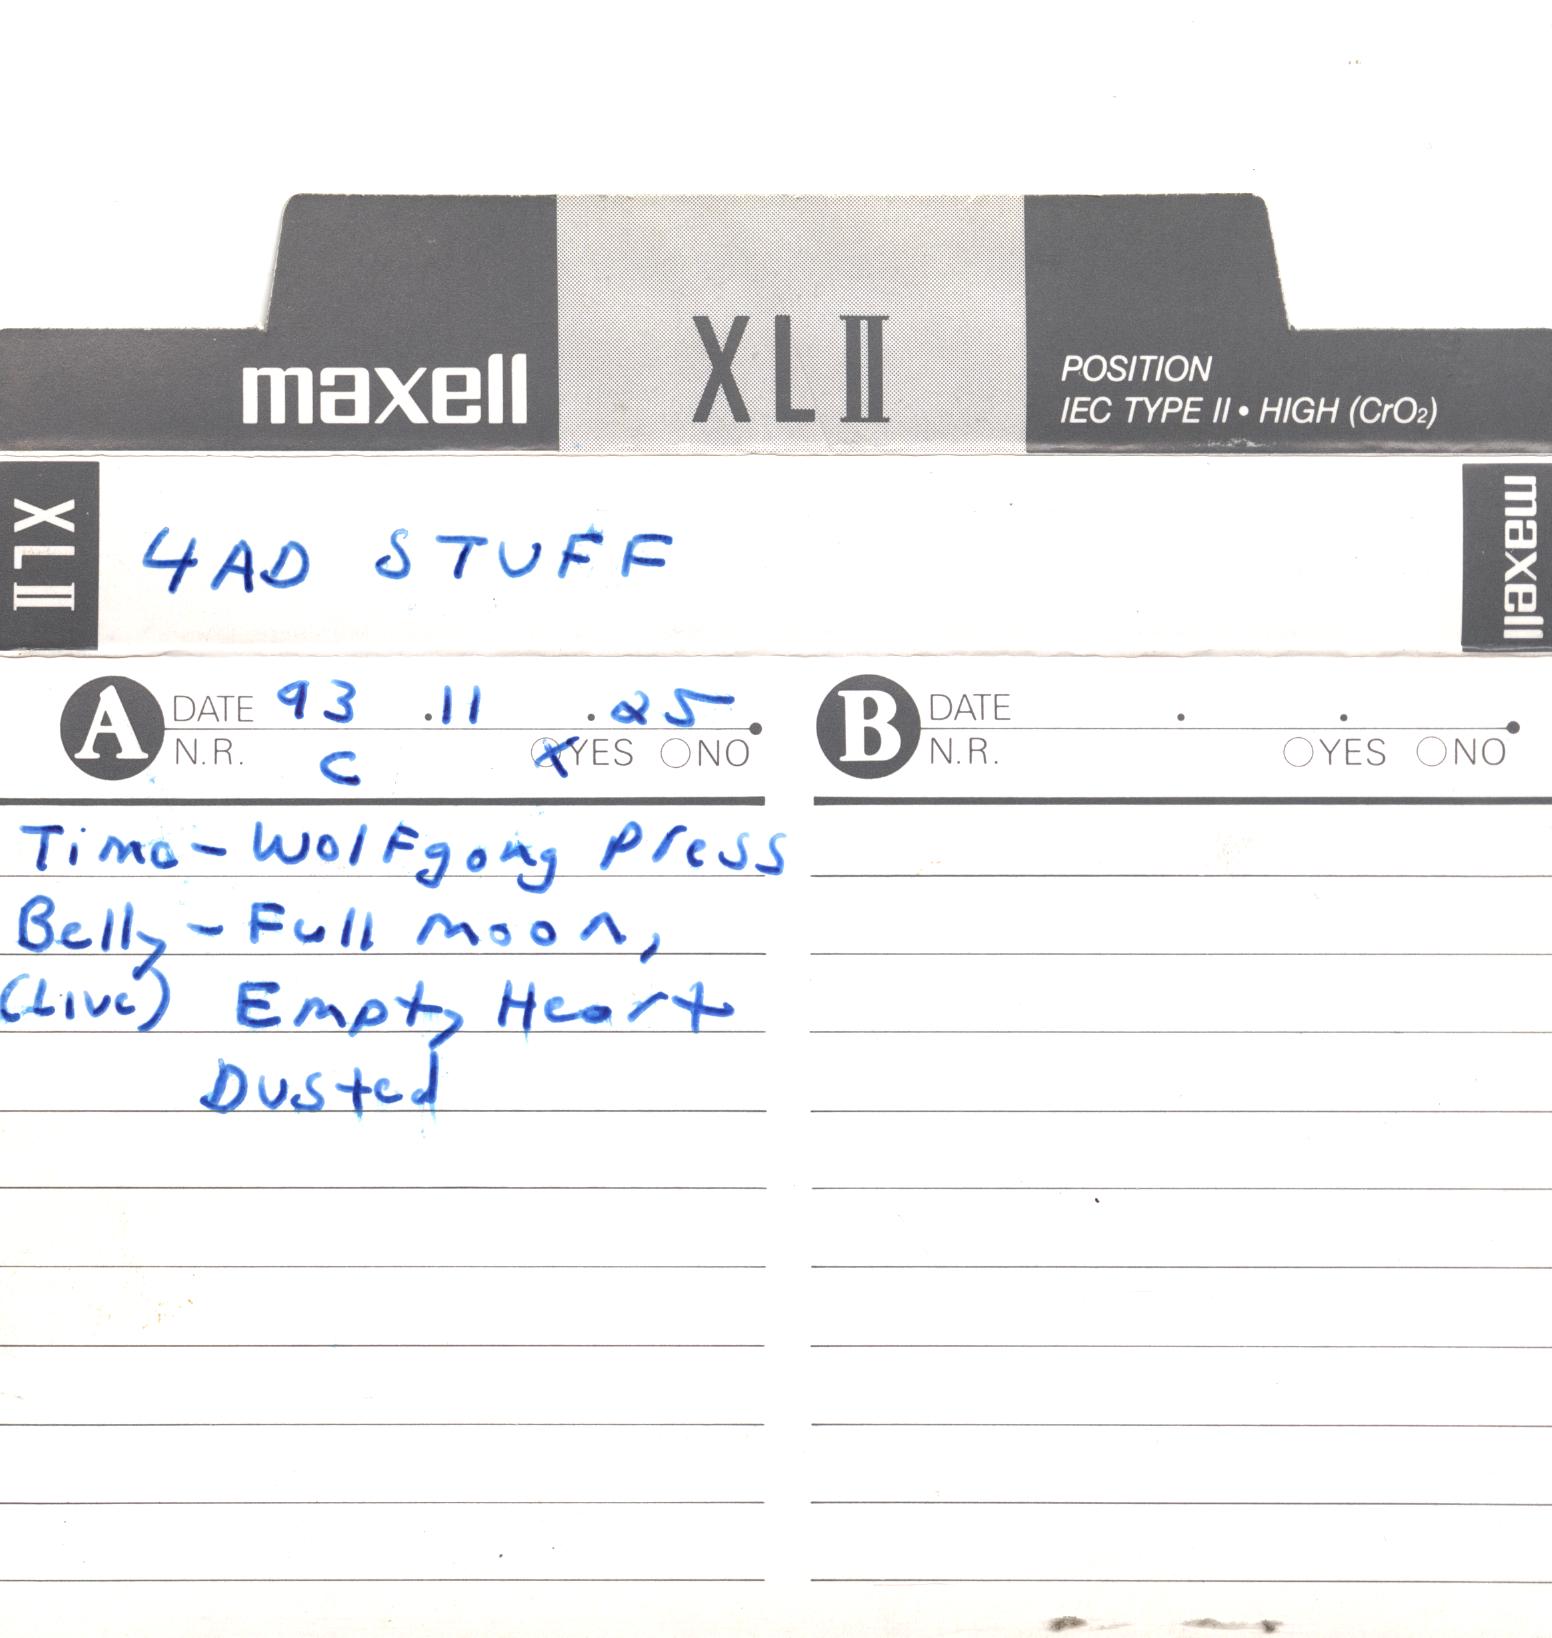 maxell XLII POSITION
IEC TYPE II • HIGH (CrO₂)
XLII 4AD STUFF maxell
A DATE 93 .11 .25
N.R. C X YES NO
B DATE . .
N.R. YES NO
Time - Wolfgang Press
Belly - Full moon,
(Live) Empty Heart
Dusted